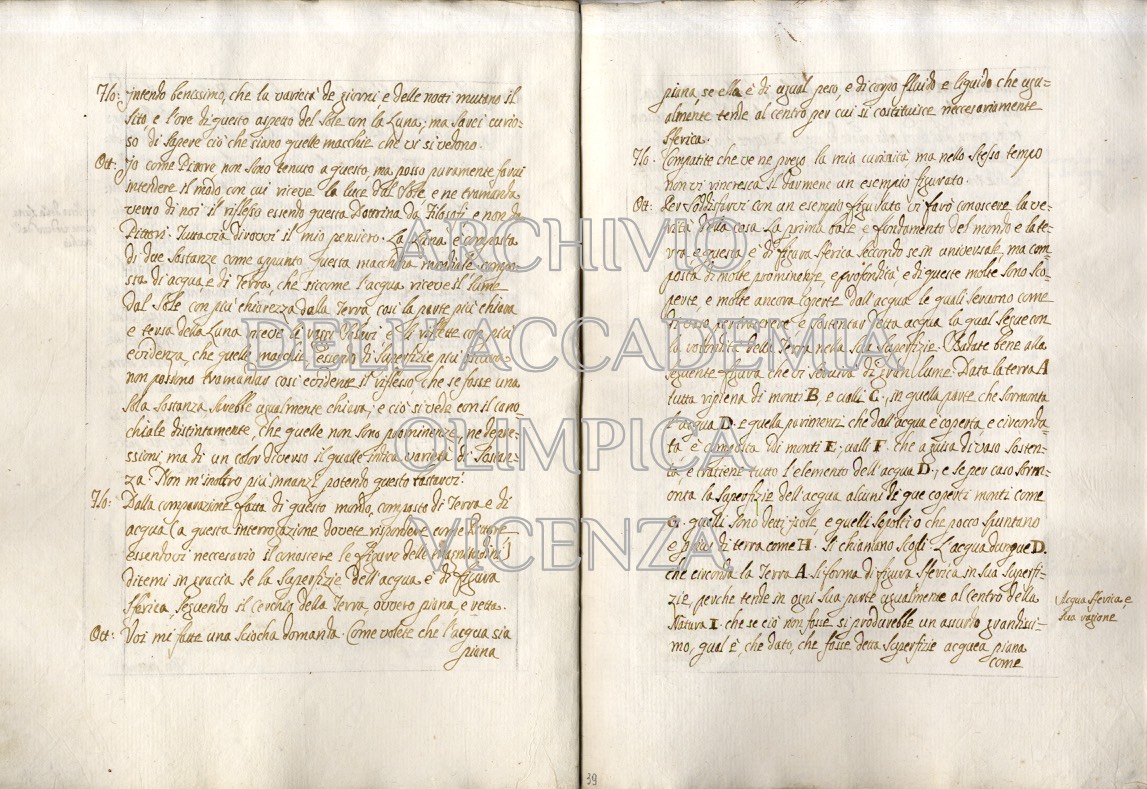 Flo: Intendo benissimo, che la varietà de giorni e delle notti mutano il
sito e l'ore di questo aspetto del Sole con la Luna; ma sarei curio=
so di sapere ciò che siano quelle macchie che vi si vedono.
Ott: Jo come Pittore non sono tenuto a questo, ma posso puramente farvi
intendere il modo con cui riceve la luce dal Sole, e ne tramanda
verso di noi il riflesso essendo questa Dottrina da Filosofi, e non da
Pittori. Tuttavia dirovvi il mio pensiero. La Luna è composta
di due sostanze come appunto questa macchina mondiale compo=
sta di acqua, e di Terra, che siccome l'acqua riceve il lume
dal Sole con più chiarezza dalla Terra, così la parte più chiara
e tersa della Luna riceve li raggi Solari e li riflette con più
evidenza, che quelle macchie essendo di superfizie più
non possino tramandar così evidente il riflesso, che se fosse una
sola sostanza sarebbe ugualmente chiara; e ciò si vede con il cano=
chiale distintamente, che quelle non sono prominenze, ne depre=
ssioni, ma di un color diverso il quale indica varietà di sostan=
za. Non m'inoltro più innanzi potendo questo bastarvi.
Flo: Dalla comparazione fatta di questo mondo, composto di Terra, e di
acqua (a questa interrogazione dovete rispondere come Pittore
essendovi necessario il conoscere le figure delle )
ditemi in grazia se la superfizie dell'acqua è di figura
sferica, seguendo il cerchio della Terra, ovvero piana, e retta.
Ott: Voi mi fatte una sciocha domanda. Come volete che l'acqua sia
piana
piana, se ella è di ugual peso, e di corpo fluido e liquido che ugu=
almente tende al centro per cui si costituisce necesariamente
sferica.
Flo: Compatite che ve ne prego la mia curiosità, ma nello stesso tempo
non vi rincresca il darmene un esempio figurato.
Ott: Per soddisfarvi con un esempio figurato vi farò conoscere la ve=
rità della cosa. La prima base, e fondamento del mondo e la te=
rra, e questa è di figura sferica secondo se in universale, ma com=
posta di molte prominenze, e profondità, e di queste molte sono sco=
perte, e molte ancora coperte dall'acqua le quali servono come
di vaso per trattenere, e sostentar detta acqua la qual segue con
la rotondità della Terra nella sua superfizie. Badate bene alla
seguente figura che vi servirà di gran lume. Data la terra A
tutta ripiena di monti B, e valli C, in quella parte che sormonta
l'acqua D. e quella parimenti che dall'acqua è coperta e circonda=
ta è composta di monti E, valli F. che a guisa di vaso sosten=
ta, e tratiene tutto l'elemento dell'acqua D; e se per caso sorm=
onta la superfizie dell'acqua alcuni de que coperti monti come
G. quelli sono detti isole e quelli sepolti o che pocco spuntano
e privi di terra come H. si chiamano scogli. L'acqua dunque D.
che circonda la Terra A. si forma di figura sferica in sua superfi=
zie, perche tende in ogni sua parte ugualmente al centro della
Natura I. che se ciò non fosse si produrebbe un assurdo grandissi=
mo, qual è, che dato, che fosse detta superfizie acquea piana
come
Acqua sferica, e
sua ragione
39
ARCHIVIO
DELL'ACCADEMIA
OLIMPICA
VICENZA